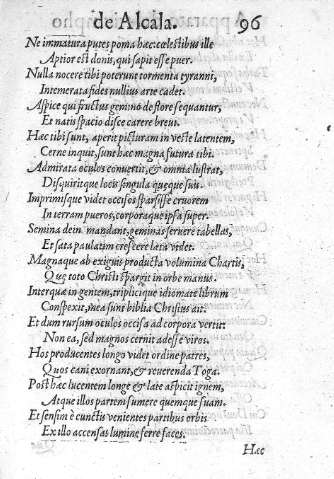 de Alcala. 96
Ne immatura putes poma hæc cœlestibus ille
Aptior est donis, qui sapit esse puer.
Nulla nocere tibi poterunt tormenta tyranni,
Intemerata fides nullius arte cadet.
Aspice qui fructus gemino de flore sequantur,
Et natis spacio disce carere brevi.
Hæc tibi sunt, aperit picturam in veste latentem,
Cerne inquit, sunt hæc magna futura tibi.
Admirata oculos convertit, & omnia lustrat,
Disquiritque locis singula quæque suis.
Imprimisque videt occisos sparsisse cruorem
In terram pueros, corporaque ipsa super.
Semina dein mandant, geminas servere tabellas,
Et sata paulatim crescere læta videt.
Magnaque ab exiguis producta volumina Chartis,
Quæ toto Christi spargit in orbe manus.
Interque in gentem, triplicique idiomate librum
Conspexit, mea sunt biblia Christus ait.
Et dum rursum oculos occisa ad corpora vertit:
Non ea, sed magnos cernit adesse viros.
Hos producentes longo videt ordine patres,
Quos cani exornant, & reverenda Toga.
Post hæc lucentem longe & late aspicit ignem,
Atque illos partem sumere quemque suam.
Et sensim è cunctis venientes partibus orbis
Ex illo accensas lumine ferre faces.
Hæc